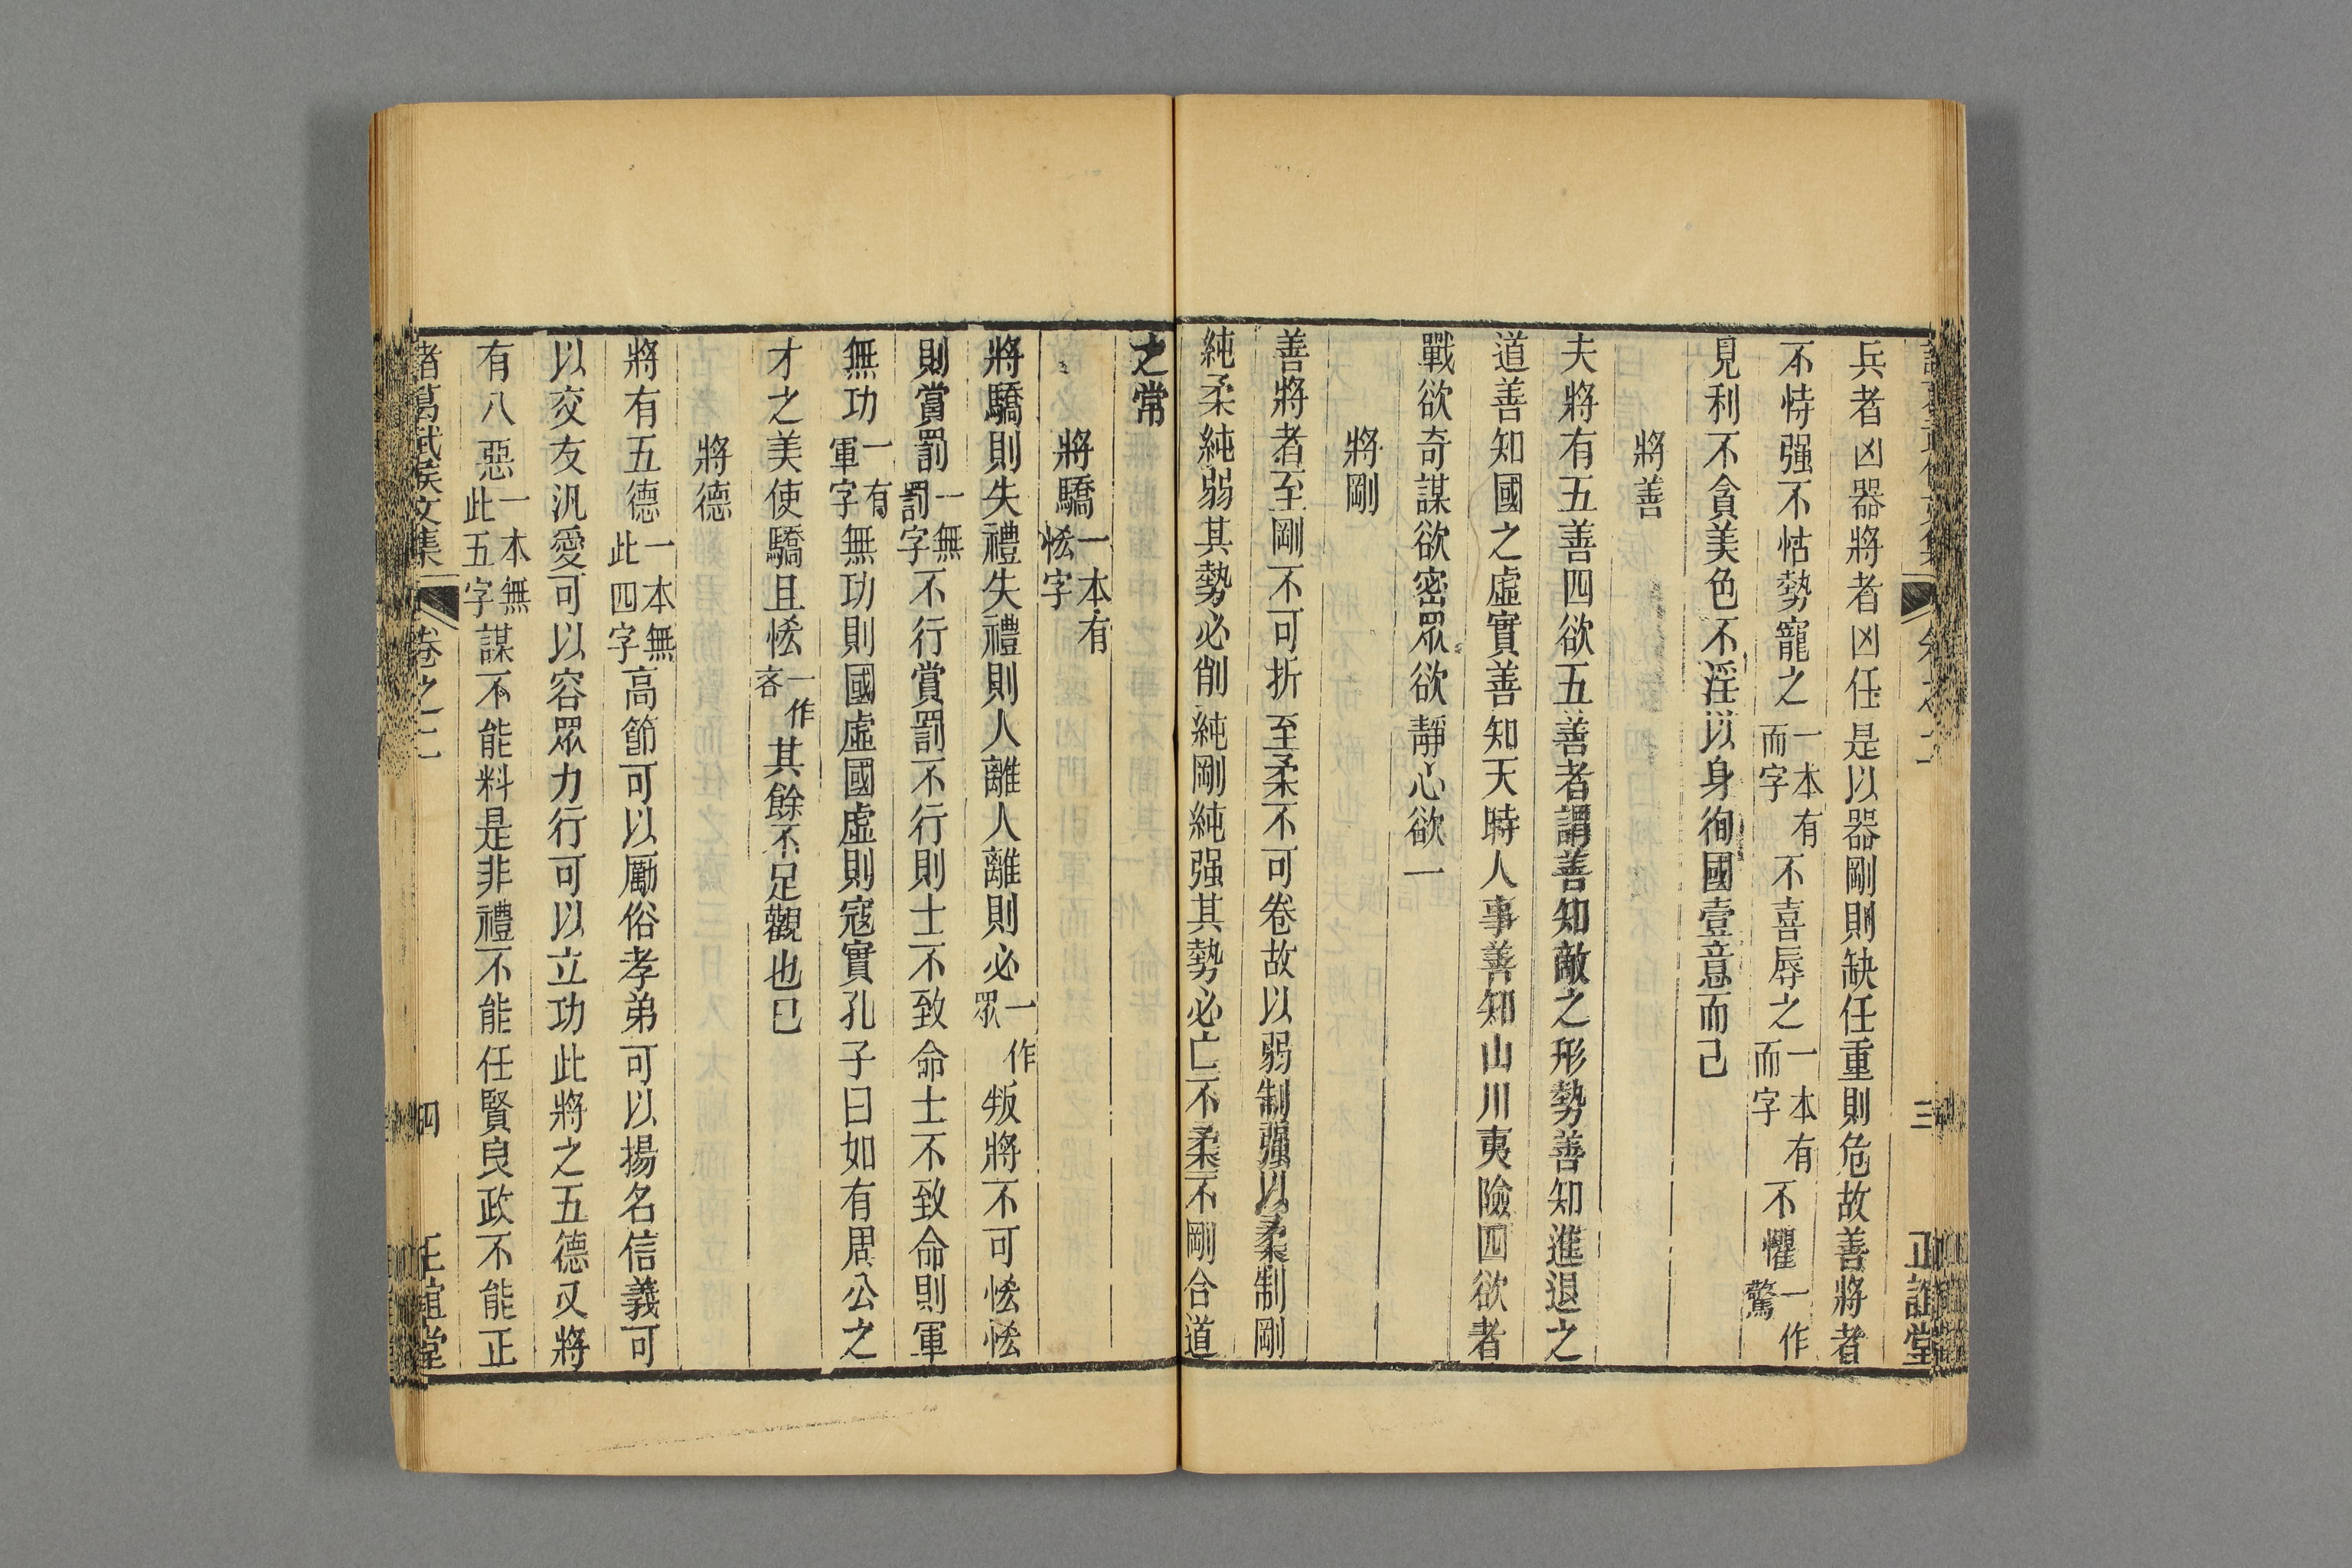 兵者凶器將者凶任是以器剛則缺任重則危故善將者
不恃强不怙勢寵之一本有而字不喜辱之一本有而字不懼一作驚
見利不貪美色不淫以身徇國壹意而己
將善
夫將有五善四欲五善者謂善知敵之形勢善知進退之
道善知國之虛實善知天時人事善知山川夷險四欲者
戰欲奇謀欲密眾欲靜心欲一
將剛
善將者至剛不可折至柔不可卷故以弱制强以柔制剛
純柔純弱其勢必削純剛純强其勢必亡不柔不剛合道
之常
將驕一本有恡字
將驕則失禮失禮則人離人離則必一作眾叛將不可恡恡
則賞罰一無罰字不行賞罰不行則士不致命士不致命則軍
無功一有軍字無功則國虛國虛則寇實孔子曰如有周公之
才之美使驕且恡一作吝其餘不足觀也已
將德
將有五德一本無此四字高節可以厲俗孝弟可以揚名信義可
以交友汎愛可以容眾力行可以立功此將之五德又將
有八惡一本無此五字謀不能料是非禮不能任賢良政不能正
諸葛武侯文集 卷之二 四 正誼堂